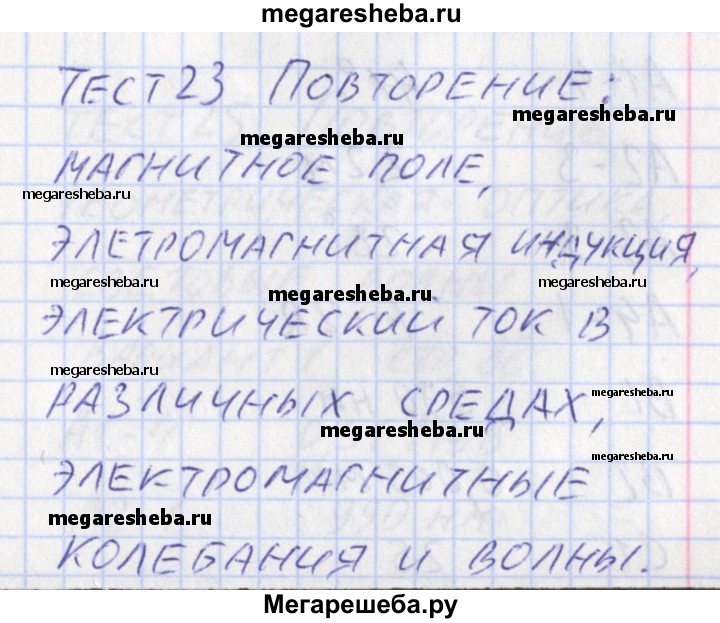 megaresheba.ru
ТЕСТ 23 ПОВТОРЕНИЕ:
megaresheba.ru
megaresheba.ru
МАГНИТНОЕ ПОЛЕ,
megaresheba.ru
megaresheba.ru
ЭЛЕТРОМАГНИТНАЯ ИНДУКЦИЯ,
megaresheba.ru
megaresheba.ru
megaresheba.ru
ЭЛЕКТРИЧЕСКИЙ ТОК В
megaresheba.ru
РАЗЛИЧНЫХ СРЕДАХ,
megaresheba.ru
megaresheba.ru
megaresheba.ru
ЭЛЕКТРОМАГНИТНЫЕ
megaresheba.ru
КОЛЕБАНИЯ И ВОЛНЫ.
Мегарешеба.ру